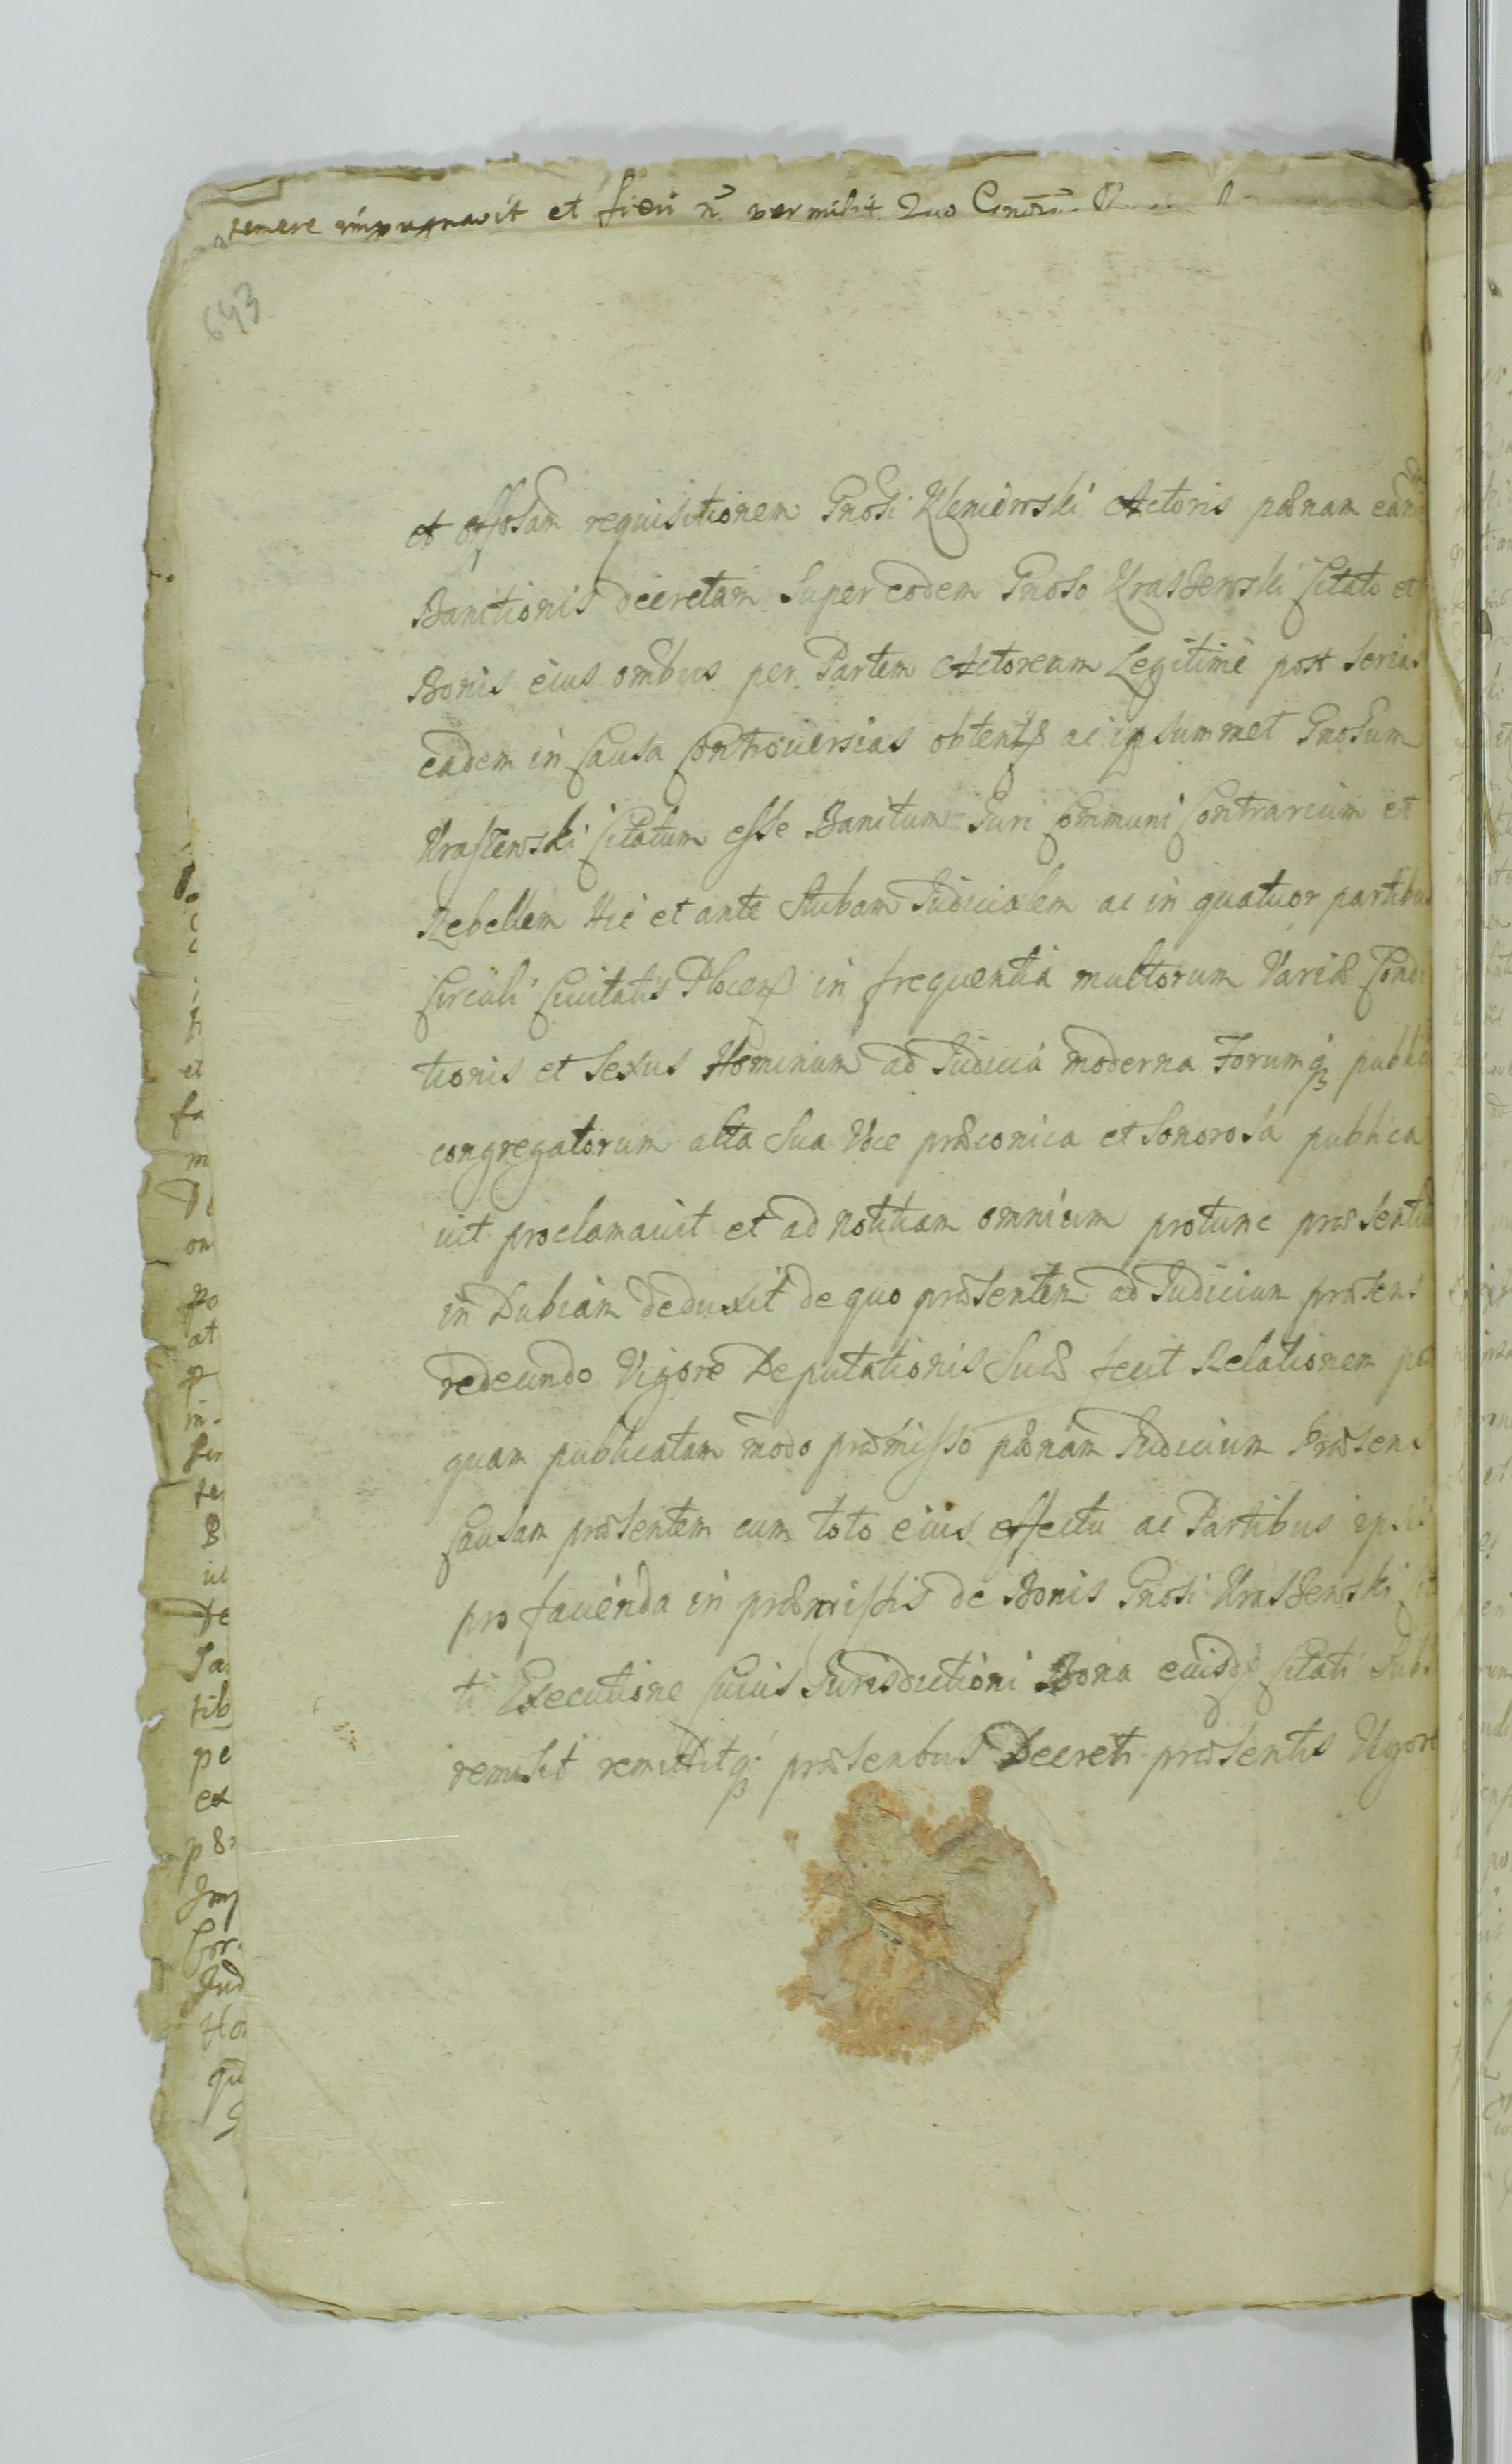 temere impugnavit et fieri n permisit Quo
643
et offosam requisitionem Gnosi Kleniewski Actoris pænam eand
Banitionis decretam Super eodem Gnoso Kraszewski Citato et
Bonis eius ombus per Partem Actoream Legitime post serias
eadem in Causa Controversias obtent ac ipsummet Gnosum
Kraszewski Citatum esse Banitum Juri Communi Contrarium et
Rebellem Hic et ante Stubam Judicialem ac in quatuor partibus
Circuli Civitatis Plocen in frequentia multorum Variæ Condi
tionis et Sexus Hominum ad Judicia moderna Forumq publi
congregatorum alta Sua Voce præconica et Sonorosa publica
vit proclamavit et ad notitiam omnium protunc præsentiu
in Dubiam deduxit de quo præsentem ad Judicium præsens
redeundo Vigore Deputationis Suæ fecit Relationem po
quam publicatam modo præmisso pænam Judicium Præsens
Causam præsentem cum toto eius effectu ac Partibus ipsis
pro facienda in præmissis de Bonis Gnosi Kraszewski Cita
ti Executione Cuius Jurisdictioni Bona eiusd Citati Subs
remisit remittitq præsentibus Decreti præsentis Vigore
et
fa
m
De
on
po
at
p
in
ser
te
B
ve
De
Sa
tib
pe
ex
Imp
Cor
Jud
Ho
qu